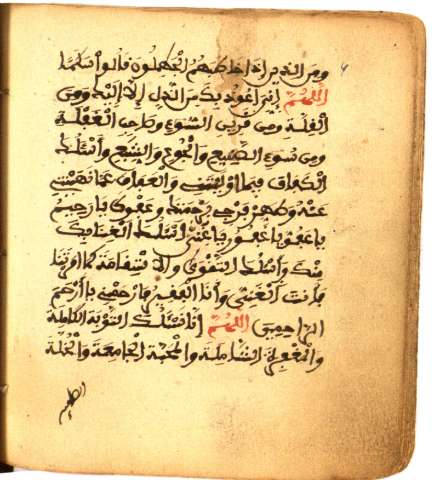 ومن الذين إذا خاطبهم الجهلون قالوا سلما
اللهم إني أعوذ بك من الذل إلا إليك ومن
القلة ومن قرين السوء وطرف الغفلة
ومن سوء الطبع والجوع والشبع وأسئلك
الكفاف فيما والعفاف عما نهيتني
عنه وطهر برحمتك وعفوك يا رحيم
يا عفو يا غفور يا غني اسئلك العناية
منك وأسئلك التقوى والاستقامة كما أمرتنا
فأنت الغني وأنا الفقير فارحمني يا أرحم
الراحمين اللهم إنا نسئلك التوبة الكاملة
والمغفرة الشاملة والمحبة الجامعة والخلة